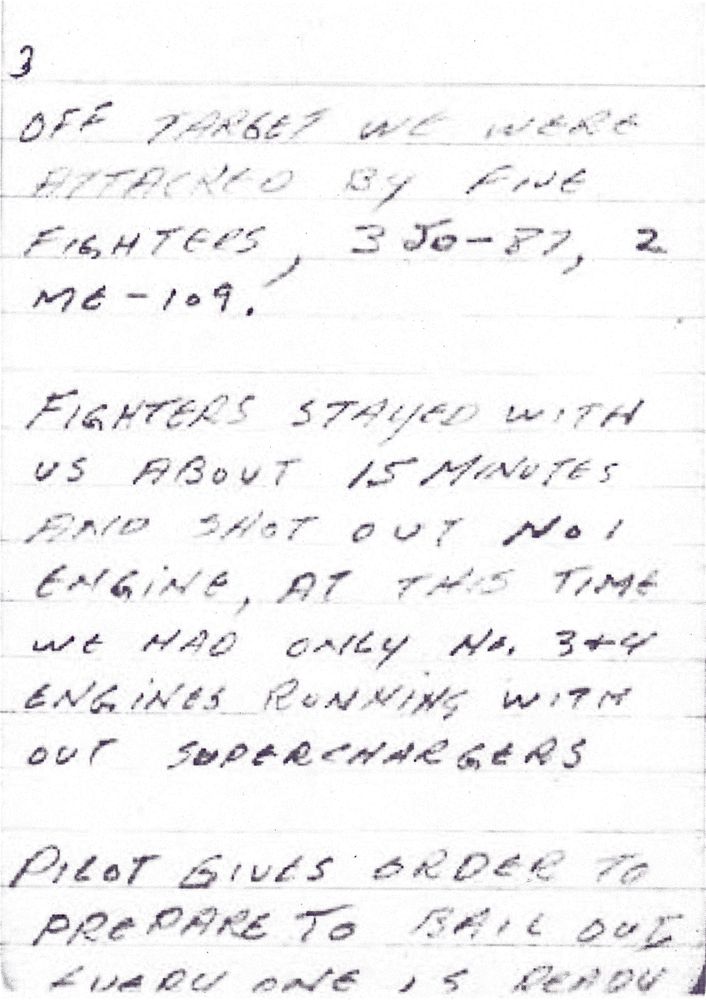 3
OFF TARGET WE WERE
ATTACKED BY FIVE
FIGHTERS, 3 JO-87, 2
ME-109.
FIGHTERS STAYED WITH
US ABOUT 15 MINUTES
AND SHOT OUT NO 1
ENGINE, AT THIS TIME
WE HAD ONLY NO. 3+4
ENGINES RUNNING WITH
OUT SUPERCHARGERS
PILOT GIVES ORDER TO
PREPARE TO BAIL OUT
EVERY ONE IS READY